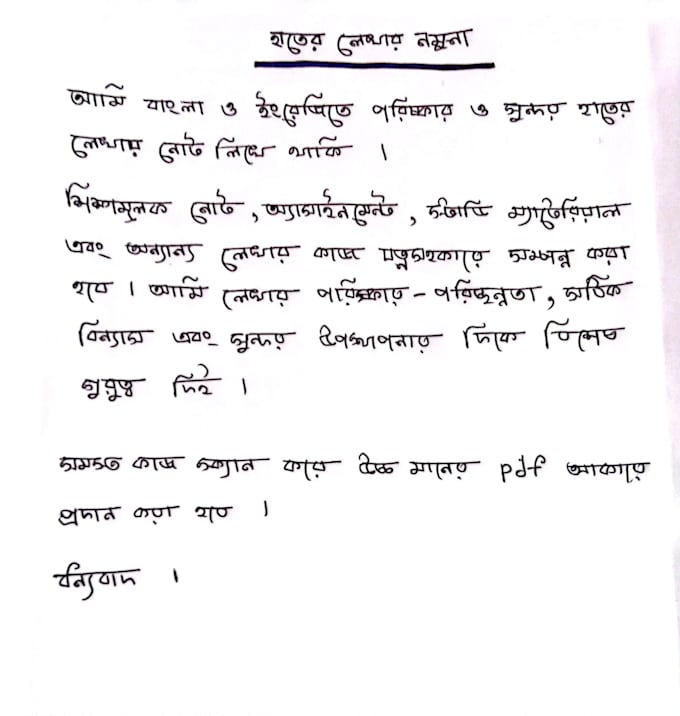 হাতের লেখার নমুনা
আমি বাংলা ও ইংরেজিতে পরিষ্কার ও সুন্দর হাতের
লেখায় নোট লিখে থাকি ।
শিক্ষামূলক নোট , অ্যাসাইনমেন্ট , স্টাডি ম্যাটেরিয়াল
এবং অন্যান্য লেখার কাজ যত্নসহকারে সম্পন্ন করা
হবে । আমি লেখার পরিষ্কার - পরিচ্ছন্নতা , সঠিক
বিন্যাস এবং সুন্দর উপস্থাপনার দিকে বিশেষ
গুরুত্ব দিই ।
সমস্ত কাজ স্ক্যান করে উচ্চ মানের pdf আকারে
প্রদান করা হবে ।
ধন্যবাদ ।